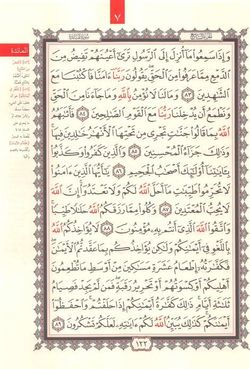 ٧
المائدة
وَإِذَا سَمِعُوا۟ مَآ أُنزِلَ إِلَى ٱلرَّسُولِ تَرَىٰٓ أَعْيُنَهُمْ تَفِيضُ مِنَ
ٱلدَّمْعِ مِمَّا عَرَفُوا۟ مِنَ ٱلْحَقِّ يَقُولُونَ رَبَّنَآ ءَامَنَّا فَٱكْتُبْنَا مَعَ
ٱلشَّٰهِدِينَ ٨٣ وَمَا لَنَا لَا نُؤْمِنُ بِٱللَّهِ وَمَا جَآءَنَا مِنَ ٱلْحَقِّ
وَنَطْمَعُ أَن يُدْخِلَنَا رَبُّنَا مَعَ ٱلْقَوْمِ ٱلصَّٰلِحِينَ ٨٤ فَأَثَٰبَهُمُ
ٱللَّهُ بِمَا قَالُوا۟ جَنَّٰتٍ تَجْرِى مِن تَحْتِهَا ٱلْأَنْهَٰرُ خَٰلِدِينَ فِيهَا
وَذَٰلِكَ جَزَآءُ ٱلْمُحْسِنِينَ ٨٥ وَٱلَّذِينَ كَفَرُوا۟ وَكَذَّبُوا۟
بِـَٔايَٰتِنَآ أُو۟لَٰٓئِكَ أَصْحَٰبُ ٱلْجَحِيمِ ٨٦ يَٰٓأَيُّهَا ٱلَّذِينَ ءَامَنُوا۟
لَا تُحَرِّمُوا۟ طَيِّبَٰتِ مَآ أَحَلَّ ٱللَّهُ لَكُمْ وَلَا تَعْتَدُوٓا۟ إِنَّ ٱللَّهَ
لَا يُحِبُّ ٱلْمُعْتَدِينَ ٨٧ وَكُلُوا۟ مِمَّا رَزَقَكُمُ ٱللَّهُ حَلَٰلًا طَيِّبًا
وَٱتَّقُوا۟ ٱللَّهَ ٱلَّذِىٓ أَنتُم بِهِۦ مُؤْمِنُونَ ٨٨ لَا يُؤَاخِذُكُمُ ٱللَّهُ
بِٱللَّغْوِ فِىٓ أَيْمَٰنِكُمْ وَلَٰكِن يُؤَاخِذُكُم بِمَا عَقَّدتُّمُ ٱلْأَيْمَٰنَ
فَكَفَّٰرَتُهُۥٓ إِطْعَامُ عَشَرَةِ مَسَٰكِينَ مِنْ أَوْسَطِ مَا تُطْعِمُونَ
أَهْلِيكُمْ أَوْ كِسْوَتُهُمْ أَوْ تَحْرِيرُ رَقَبَةٍ فَمَن لَّمْ يَجِدْ فَصِيَامُ
ثَلَٰثَةِ أَيَّامٍ ذَٰلِكَ كَفَّٰرَةُ أَيْمَٰنِكُمْ إِذَا حَلَفْتُمْ وَٱحْفَظُوٓا۟
أَيْمَٰنَكُمْ كَذَٰلِكَ يُبَيِّنُ ٱللَّهُ لَكُمْ ءَايَٰتِهِۦ لَعَلَّكُمْ تَشْكُرُونَ ٨٩
١٢٢